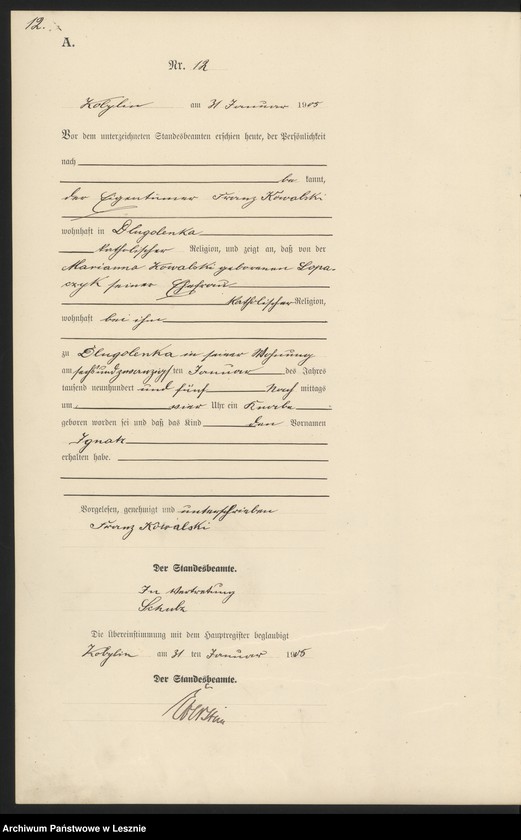 12.
A.
Nr. 12
Kobylin am 31 Januar 1905
Vor dem unterzeichneten Standesbeamten erschien heute, der Persönlichkeit
nach
be kannt,
der Eigentümer Franz Kowalski
wohnhaft in Dlugolenka
katholischer Religion, und zeigt an, daß von der
Marianna Kowalski geborenen Lopa-
czyk seiner Ehefrau
katholischer Religion,
wohnhaft bei ihm
zu Dlugolenka in seiner Wohnung
am sechsundzwanzigsten Januar des Jahres
tausend neunhundert und fünf Nach mittags
um vier Uhr ein Knabe
geboren worden sei und daß das Kind den Vornamen
Ignatz
erhalten habe.
Vorgelesen, genehmigt und unterschrieben
Franz Kowalski
Der Standesbeamte.
In Vertretung
Schulz
Die Übereinstimmung mit dem Hauptregister beglaubigt
Kobylin am 31 ten Januar 1905
Der Standesbeamte.
Archiwum Państwowe w Lesznie